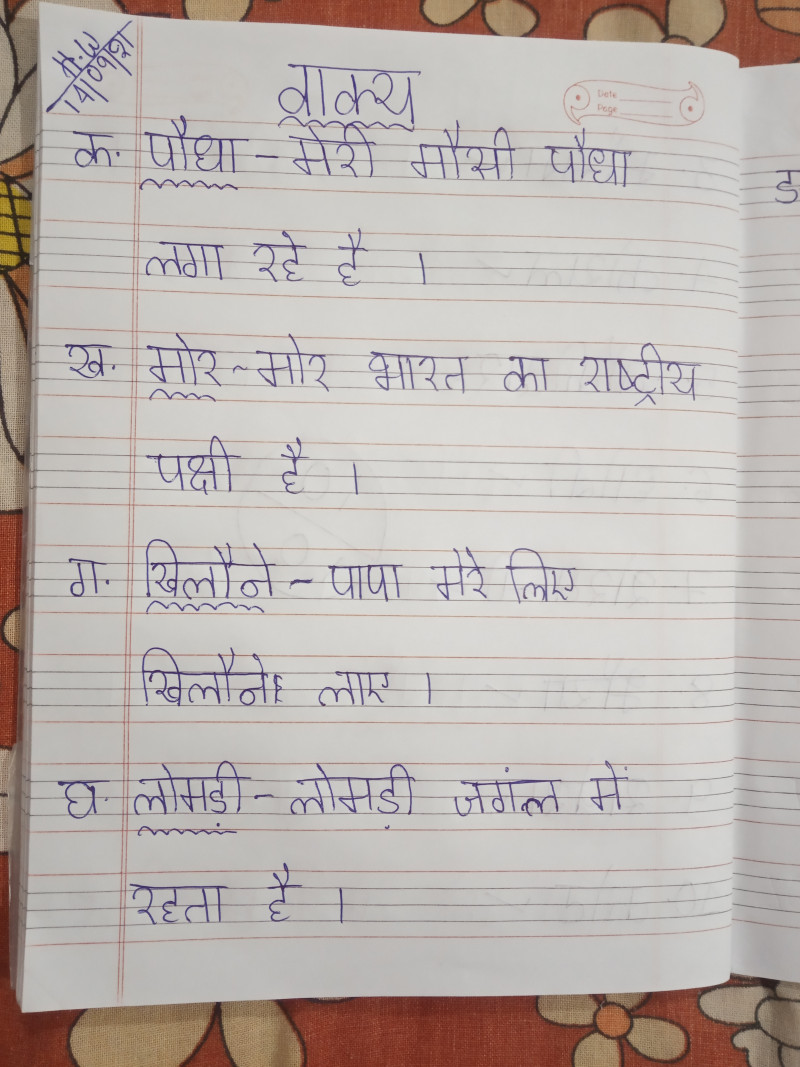 H.W
14/09/21
वाक्य
Date
Page
क. पौधा - मेरी मौसी पौधा
लगा रहे है ।
ख. मोर - मोर भारत का राष्ट्रीय
पक्षी है ।
ग. खिलौने - पापा मेरे लिए
खिलौने लाए ।
घ. लोमड़ी - लोमड़ी जगंल में
रहता है ।
ड